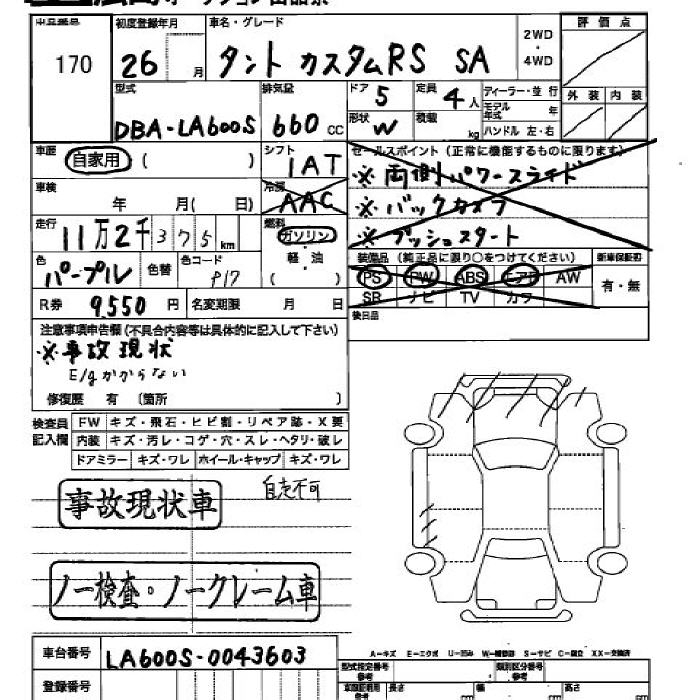 広島オークション出品票
出品番号 170
初度登録年月 26 月
車名・グレード タント カスタムRS SA
2WD ・ 4WD
評価点
外装 内装
型式 DBA-LA600S
排気量 660 CC
ドア 5
形状 W
定員 4人
積載 kg
ディーラー・並行
モデル年式 年
ハンドル 左・右
車歴 自家用 ( )
シフト IAT
車検 年 月( 日)
冷房 AAC
走行 11万2千375km
燃料 ガソリン ・ 軽油 ( )
色 パープル 色替 色コード P17
R券 9,550円 名変期限 月 日
セールスポイント (正常に機能するものに限ります)
※両側パワースライド
※バックカメラ
※プッシュスタート
装備品 (純正品に限り○をつけてください) 新車保証書
PS PW ABS エアB AW 有・無
SR ナビ TV カワ
後日品
注意事項申告欄(不具合内容等は具体的に記入して下さい)
※事故現状
E/gかからない
修復歴 有 (箇所 )
検査員記入欄
FW キズ・飛石・ヒビ割・リペア跡・X要
内装 キズ・汚レ・コゲ・穴・スレ・ヘタリ・破レ
ドアミラー キズ・ワレ ホイール・キャップ キズ・ワレ
自走不可
事故現状車
ノー検査・ノークレーム車
車台番号 LA600S-0043603
登録番号
A-キズ E-エクボ U-凹み W-補修跡 S-サビ C-腐食 XX-交換済
型式指定番号 参考 類別区分番号 参考
長さ cm 幅 cm 高さ